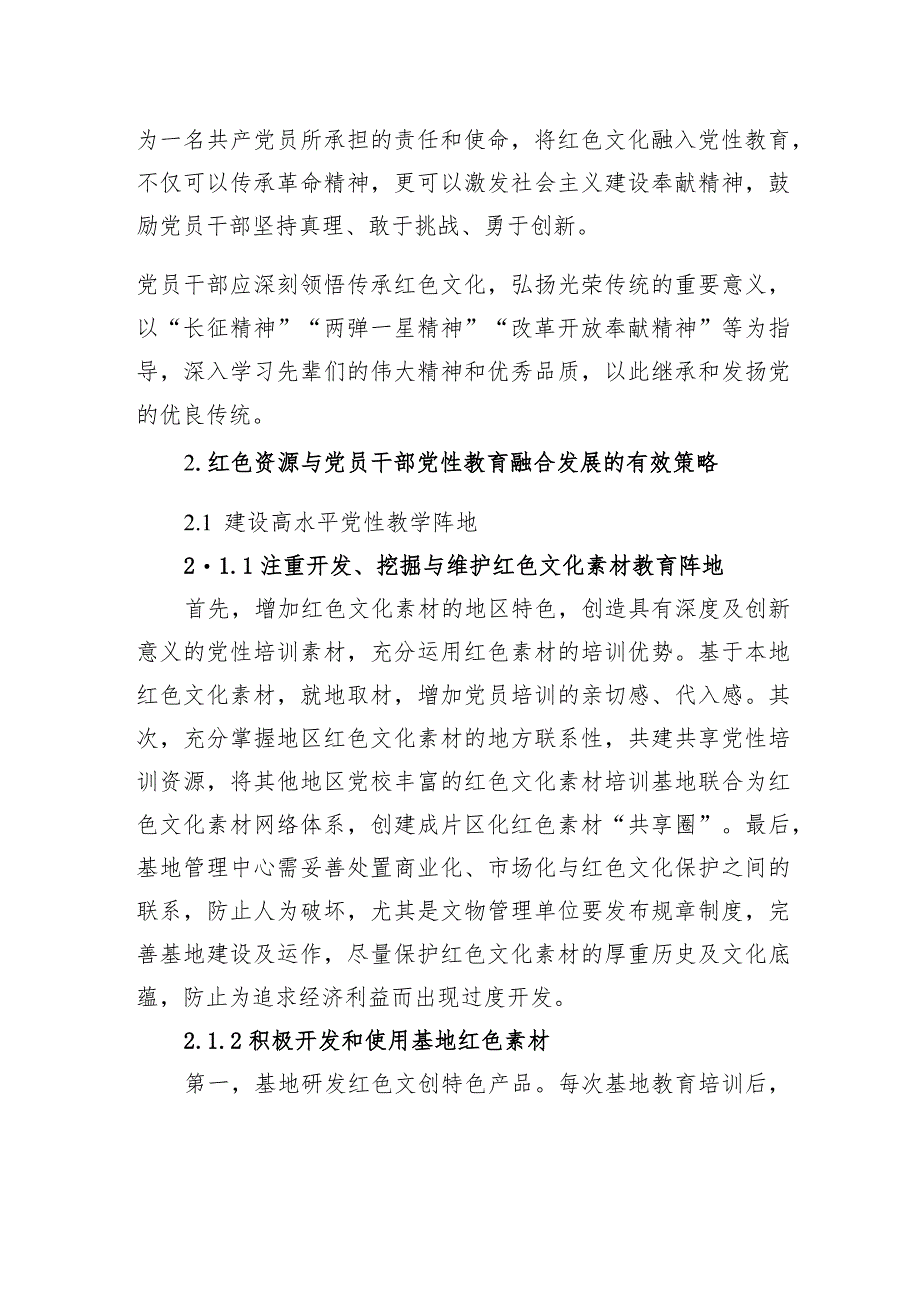 为一名共产党员所承担的责任和使命，将红色文化融入党性教育，
不仅可以传承革命精神，更可以激发社会主义建设奉献精神，鼓
励党员干部坚持真理、敢于挑战、勇于创新。
党员干部应深刻领悟传承红色文化，弘扬光荣传统的重要意义，
以“长征精神”“两弹一星精神”“改革开放奉献精神”等为指
导，深入学习先辈们的伟大精神和优秀品质，以此继承和发扬党
的优良传统。
2.红色资源与党员干部党性教育融合发展的有效策略
2.1 建设高水平党性教学阵地
2·1.1注重开发、挖掘与维护红色文化素材教育阵地
首先，增加红色文化素材的地区特色，创造具有深度及创新
意义的党性培训素材，充分运用红色素材的培训优势。基于本地
红色文化素材，就地取材，增加党员培训的亲切感、代入感。其
次，充分掌握地区红色文化素材的地方联系性，共建共享党性培
训资源，将其他地区党校丰富的红色文化素材培训基地联合为红
色文化素材网络体系，创建成片区化红色素材“共享圈”。最后，
基地管理中心需妥善处置商业化、市场化与红色文化保护之间的
联系，防止人为破坏，尤其是文物管理单位要发布规章制度，完
善基地建设及运作，尽量保护红色文化素材的厚重历史及文化底
蕴，防止为追求经济利益而出现过度开发。
2.1.2积极开发和使用基地红色素材
第一，基地研发红色文创特色产品。每次基地教育培训后，